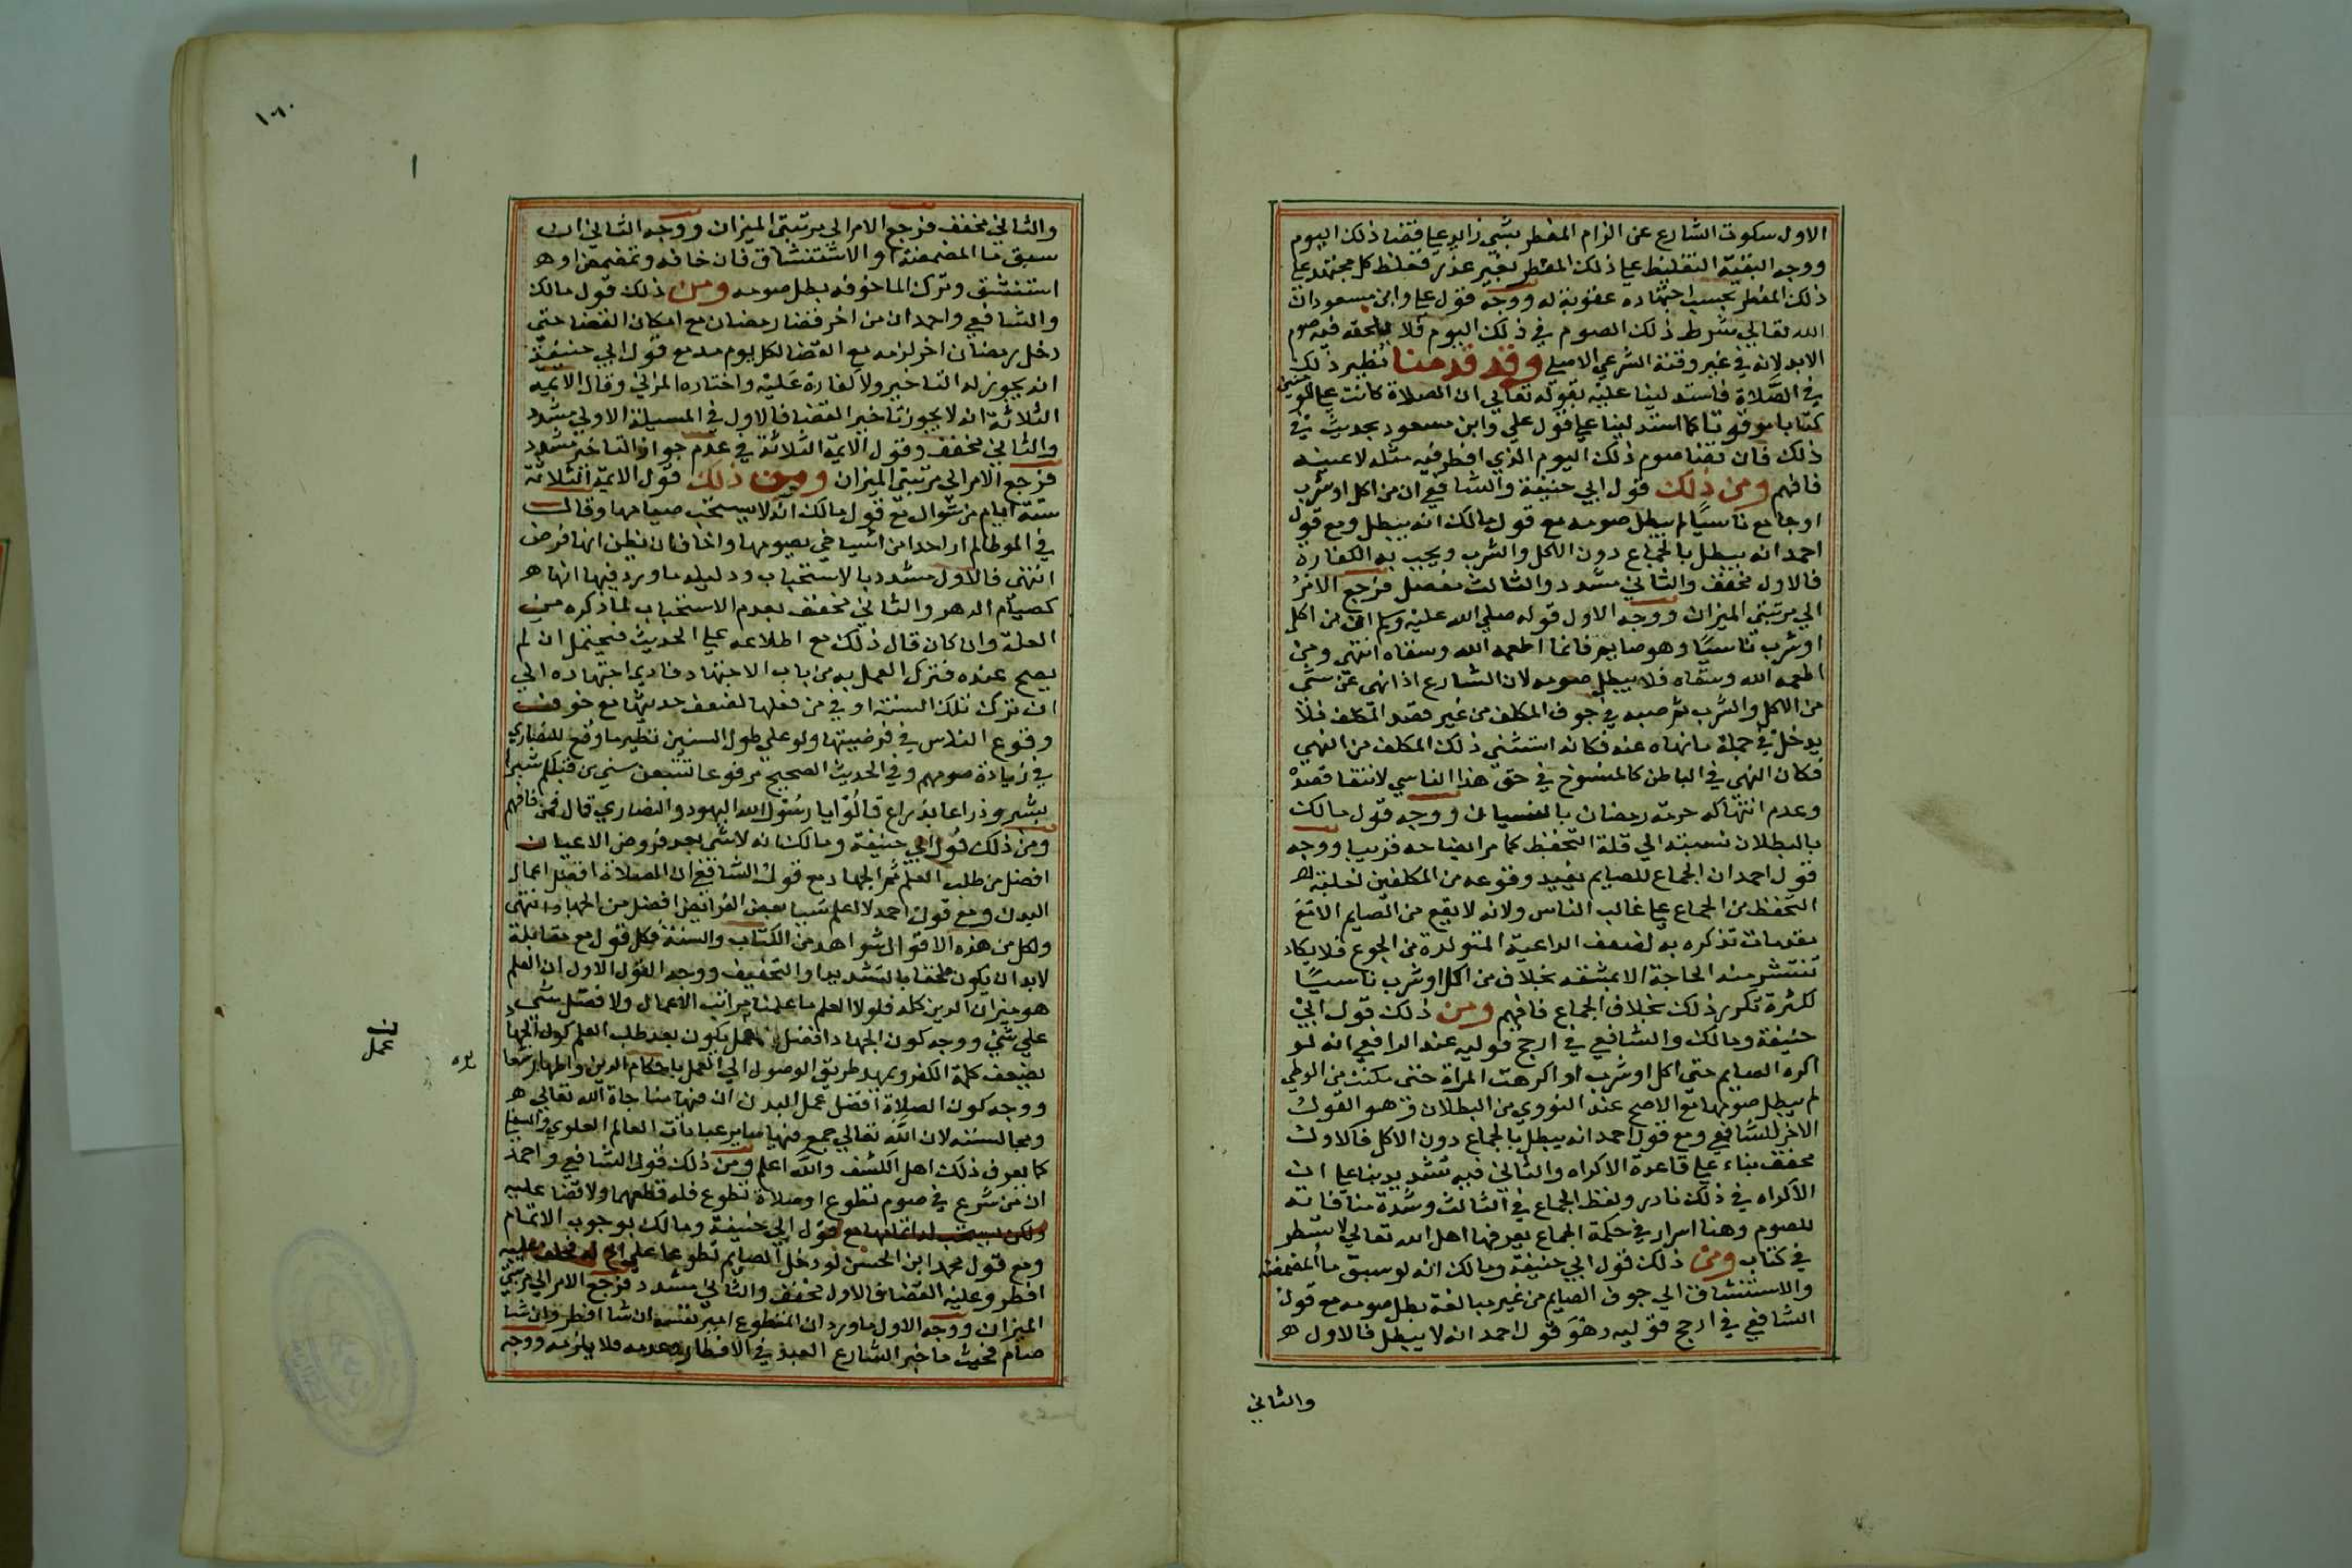 الاول سكوت الشارع عن الزام المفطر بشي زايد علي قضا ذلك اليوم
ووجه البقية التغليظ علي ذلك المفطر بغير عذر فغلظ كل مجتهد علي
ذلك المفطر بحسب اجتهاده عقوبة له ووجه قول علي وابن مسعود ان
الله تعالي شرط ذلك الصوم في ذلك اليوم فلا يلحقه فيه صوم
الابد لانه في غير وقته الشرعي الاصلي وقد قدمنا نظير ذلك
في الصلاة فاستدلينا عليه بقوله تعالي ان الصلاة كانت علي المومنين
كتابا موقوتا كما استدلينا علي قول علي وابن مسعود بحديث في
ذلك فان قضا صوم ذلك اليوم الذي افطر فيه مثله لا عينه
فافهم ومن ذلك قول ابي حنيفة والشافعي ان من اكل او شرب
او جامع ناسيا لم يبطل صومه مع قول مالك انه يبطل ومع قول
احمد انه يبطل بالجماع دون الاكل والشرب ويجب به الكفارة
فالاول مخفف والثاني مشدد والثالث مفصل فرجع الامر
الي مرتبتي الميزان ووجه الاول قوله صلي الله عليه وسلم ان من اكل
او شرب ناسيا وهو صايم فانما اطعمه الله وسقاه انتهي ومن
اطعمه الله وسقاه فلا يبطل صومه لان الشارع اذا نهي عن شي
من الاكل والشرب ثم صبه في جوف المكلف من غير قصد المكلف فلا
يدخل في جملة ما نهاه عنه فكانه استثني ذلك المكلف من النهي
فكان النهي في الباطن كالمنسوخ في حق هذا الناسي لانتفا قصده
وعدم انتهاكه حرمة رمضان بالنسيان ووجه قول مالك
بالبطلان نسبته الي قلة التحفظ كما مر ايضاحه قريبا ووجه
قول احمد ان الجماع للصايم بعيد وقوعه من المكلفين لغلبة
التحفظ من الجماع علي غالب الناس ولانه لا يقع من الصايم الا مع
مقدمات تذكره به لضعف الداعية المتولدة من الجوع فلا يكاد
تنتشر منه الحاجة الا بمشقة بخلاف من اكل او شرب ناسيا
لكثرة تكرر ذلك بخلاف الجماع فافهم ومن ذلك قول ابي
حنيفة ومالك والشافعي في ارجح قوليه عند الرافعي انه لو
اكره الصايم حتي اكل او شرب او اكرهت المراة حتي مكنت من الوطي
لم يبطل صومهما مع الاصح عند النووي من البطلان وهو القول
الاخر للشافعي ومع قول احمد انه يبطل بالجماع دون الاكل فالاول
مخفف بناء علي قاعدة الاكراه والثاني فيه تشديد بنا علي ان
الاكراه في ذلك نادر ولفظ الجماع في الثالث وشدة منافاته
للصوم وهنا اسرار في حكمة الجماع يعرفها اهل الله تعالي لا تسطر
في كتاب ومن ذلك قول ابي حنيفة ومالك انه لو سبق ما المضمضة
والاستنشاق الي جوف الصايم من غير مبالغة بطل صومه مع قول
الشافعي في ارجح قوليه وهو قول احمد انه لا يبطل فالاول
والثاني
١٨٠
والثاني مخفف فرجع الامر الي مرتبتي الميزان ووجه الثاني ان
سبق ما المضمضة او الاستنشاق فان خافه وتمضمض او
استنشق وترك الما خوفه بطل صومه ومن ذلك قول مالك
والشافعي واحمد ان من اخر قضا رمضان مع امكان القضا حتي
دخل رمضان اخر لزمه مع القضا لكل يوم مد مع قول ابي حنيفة
انه يجوز له التاخير ولا كفارة عليه واختاره المزني وقال الايمة
الثلاثة انه لا يجوز تاخير القضا فالاول في المسيلة الاولي مشدد
والثاني مخفف وقول الايمة الثلاثة في عدم جواز التاخير مشدد
فرجع الامر الي مرتبتي الميزان ومن ذلك قول الايمة الثلاثة
ستة ايام من شوال مع قول مالك انه لا يستحب صيامها وقال
في الموطا لم ار احدا من اشياخي يصومها واخاف ان يظن انها فرض
انتهي فالاول مشدد بالاستحباب ودليله ما ورد فيها انها
كصيام الدهر والثاني مخفف بعدم الاستحباب لما ذكره من
العلة وان كان قال ذلك مع اطلاعه علي الحديث فيحتمل ان لم
يصح عنده فترك العمل به من باب الاجتهاد فادي اجتهاده الي
ان ترك تلك السنة اولي من فعلها لضعف حديثها مع خوف
وقوع الناس في فرضيتها ولو علي طول السنين نظير ما وقع للنصاري
في زيادة صومهم وفي الحديث الصحيح مرفوعا تتبعن سنن من قبلكم شبرا
بشبر وذراعا بذراع قالوا يا رسول الله اليهود والنصاري قال فمن فافهم
ومن ذلك قول ابي حنيفة ومالك انه لا شي بعد فروض الاعيان
افضل من طلب العلم ثم الجهاد مع قول الشافعي ان الصلاة افضل اعمال
البدن ومع قول احمد لا اعلم شيا بعد الفرائض افضل من الجهاد انتهي
ولكل من هذه الاقوال شواهد من الكتاب والسنة فكل قول مع مقابلة
لابد ان يكون ملحقا بالتشديد او التخفيف ووجه القول الاول ان العلم
هو ميزان الدين كله فلولا العلم ما علمنا مراتب الاعمال ولا فضل شي
علي شي ووجه كون الجهاد افضل عمل يكون بعد طلب العلم كون الجهاد
يضعف كلمة الكفر ويمهد طريق الوصول الي العمل باحكام الدين واظهار شعا
يره
عمل
ووجه كون الصلاة افضل عمل البدن ان فيها مناجاة الله تعالي
ومجالسته لان الله تعالي جمع فيها ساير عبادات العالم العلوي والسفلي
كما يعرف ذلك اهل الكشف والله اعلم ومن ذلك قول الشافعي واحمد
ان من شرع في صوم تطوع او صلاة تطوع فله قطعهما ولا قضا عليه
ولكن يستحب له اتمامهما مع قول ابي حنيفة ومالك بوجوب الاتمام
ومع قول محمد ابن الحسن لو دخل الصايم تطوعا علي اخ له فحلف عليه
افطر وعليه القضا فالاول مخفف والثاني مشدد فرجع الامر الي مرتبتي
الميزان ووجه الاول ما ورد ان المتطوع امير نفسه ان شا افطر وان شا
صام فحيث ما خير الشارع العبد في الافطار وعدمه فلا يلزمه ووجه